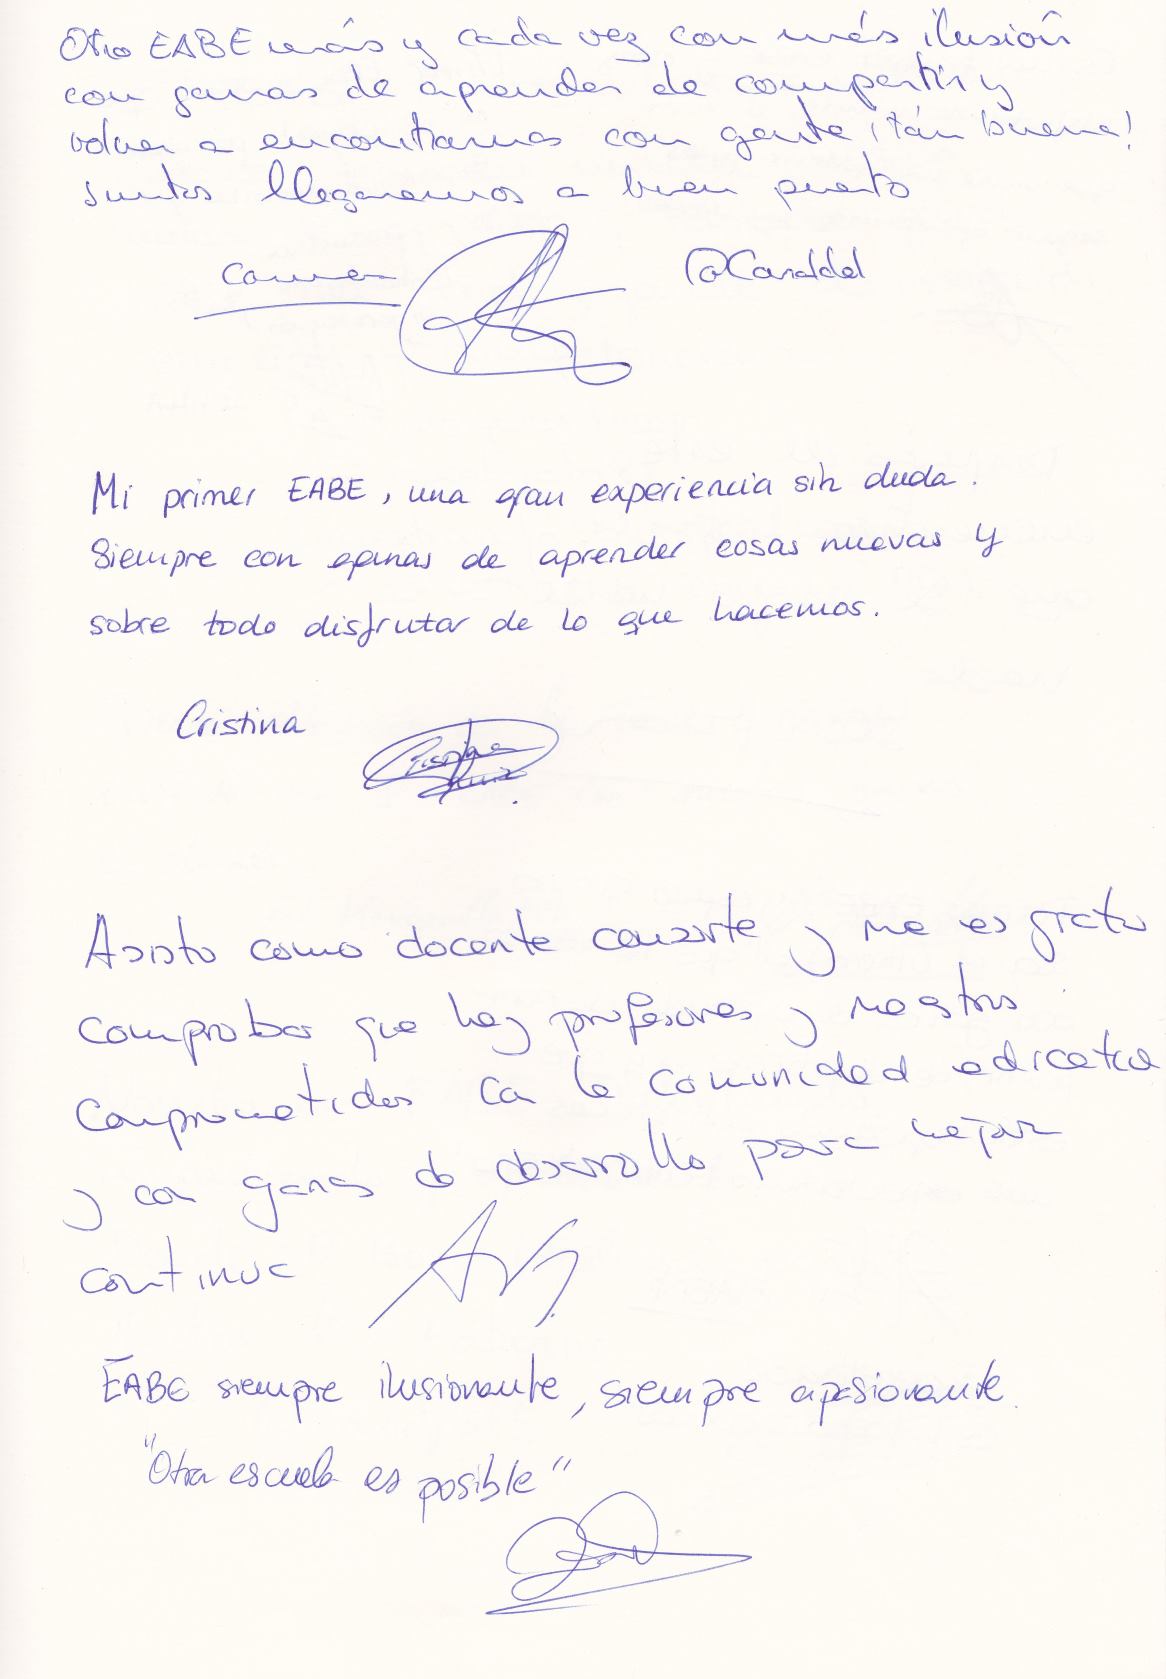 Otro EABE más y cada vez con más ilusión
con ganas de aprender de compartir y
volver a encontrarnos con gente ¡tán buena!
Juntos llegaremos a buen puerto
Carmen
Mi primer EABE, una gran experiencia sin duda.
Siempre con ganas de aprender cosas nuevas y
sobre todo disfrutar de lo que hacemos.
Cristina
Cristina
Asisto como docente consorte y me es grato
comprobar que hay profesores y maestros
comprometidos con la comunidad educativa
y con ganas de desarrollo para mejora
continua
EABE siempre ilusionante, siempre apasionante.
"Otra escuela es posible"